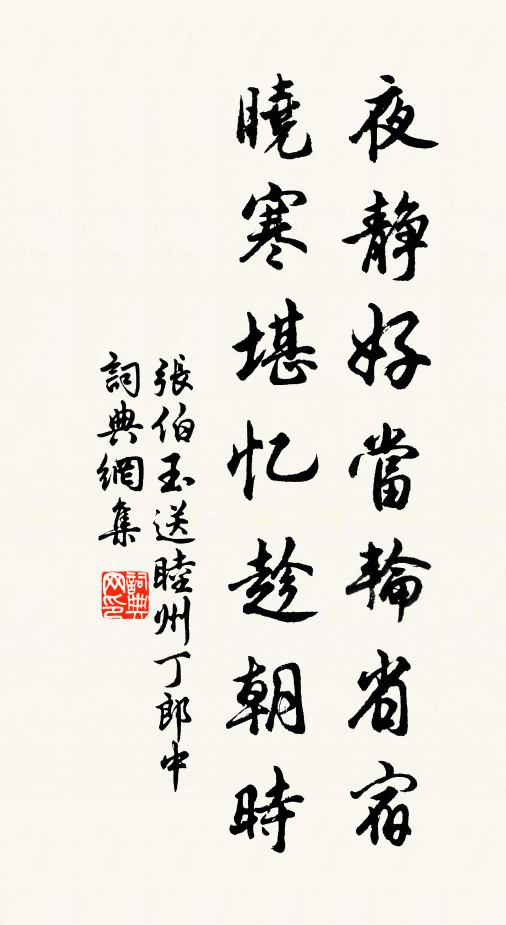 夜靜好當輪省宿
曉寒堪忆趁朝時
張伯玉送睦州丁郎中
詞典網集
詞典网印